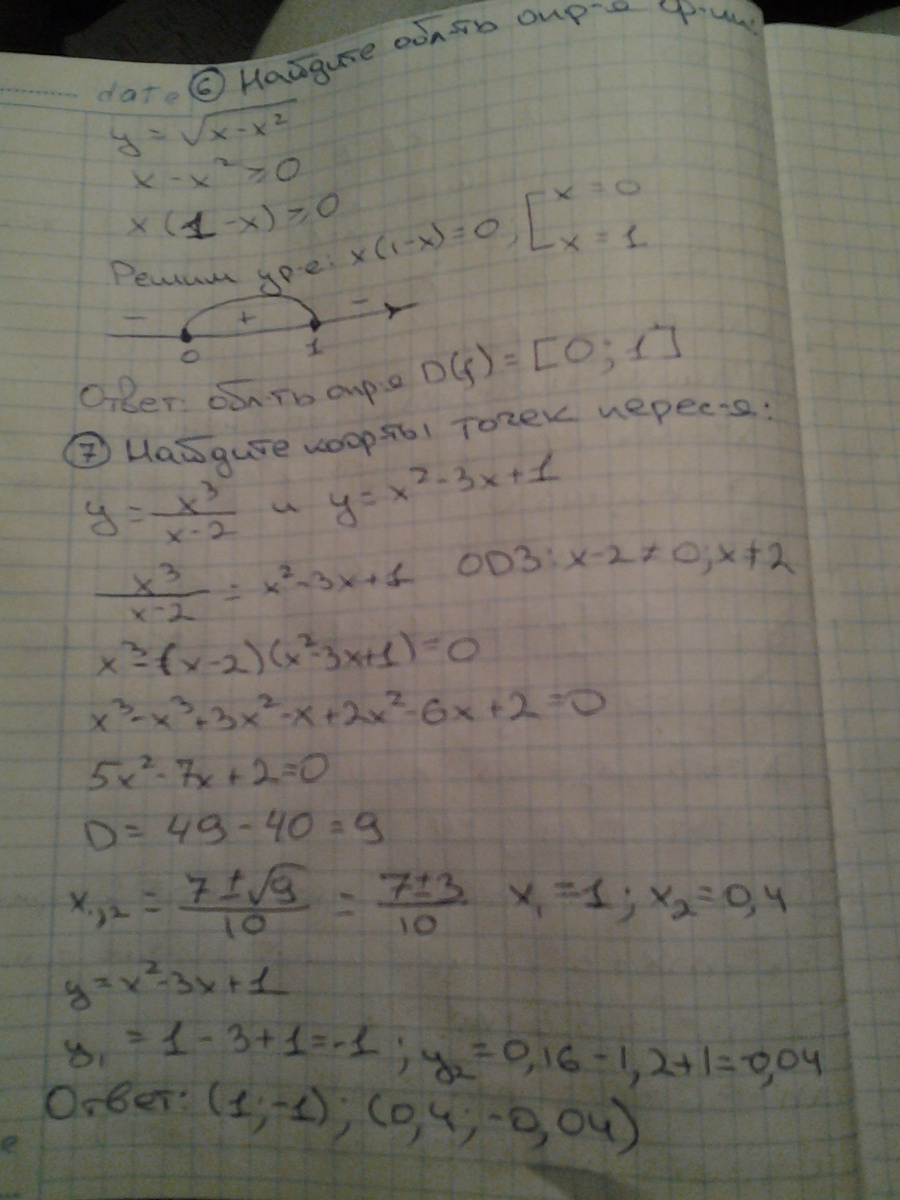 date ⑥ Найдите обл-ть опр-я ф-ции:
y = √x-x²
x - x² ≥ 0
x (1 - x) ≥ 0
Решим ур-е: x(1-x) = 0, [ x = 0
x = 1
- + -
0 1
Ответ: обл-ть опр-я D(y) = [0; 1]
⑦ Найдите коорты точек перес-я:
y = x³/x-2 и y = x² - 3x + 1
x³/x-2 = x² - 3x + 1 ОДЗ: x-2 ≠ 0; x ≠ 2
x³ - (x-2)(x²-3x+1) = 0
x³ - x³ + 3x² - x + 2x² - 6x + 2 = 0
5x² - 7x + 2 = 0
D = 49 - 40 = 9
x₁,₂ = 7 ± √9/10 = 7±3/10 x₁ = 1; x₂ = 0,4
y = x² - 3x + 1
y₁ = 1 - 3 + 1 = -1 ; y₂ = 0,16 - 1,2 + 1 = -0,04
Ответ: (1; -1) ; (0,4; -0,04)
e